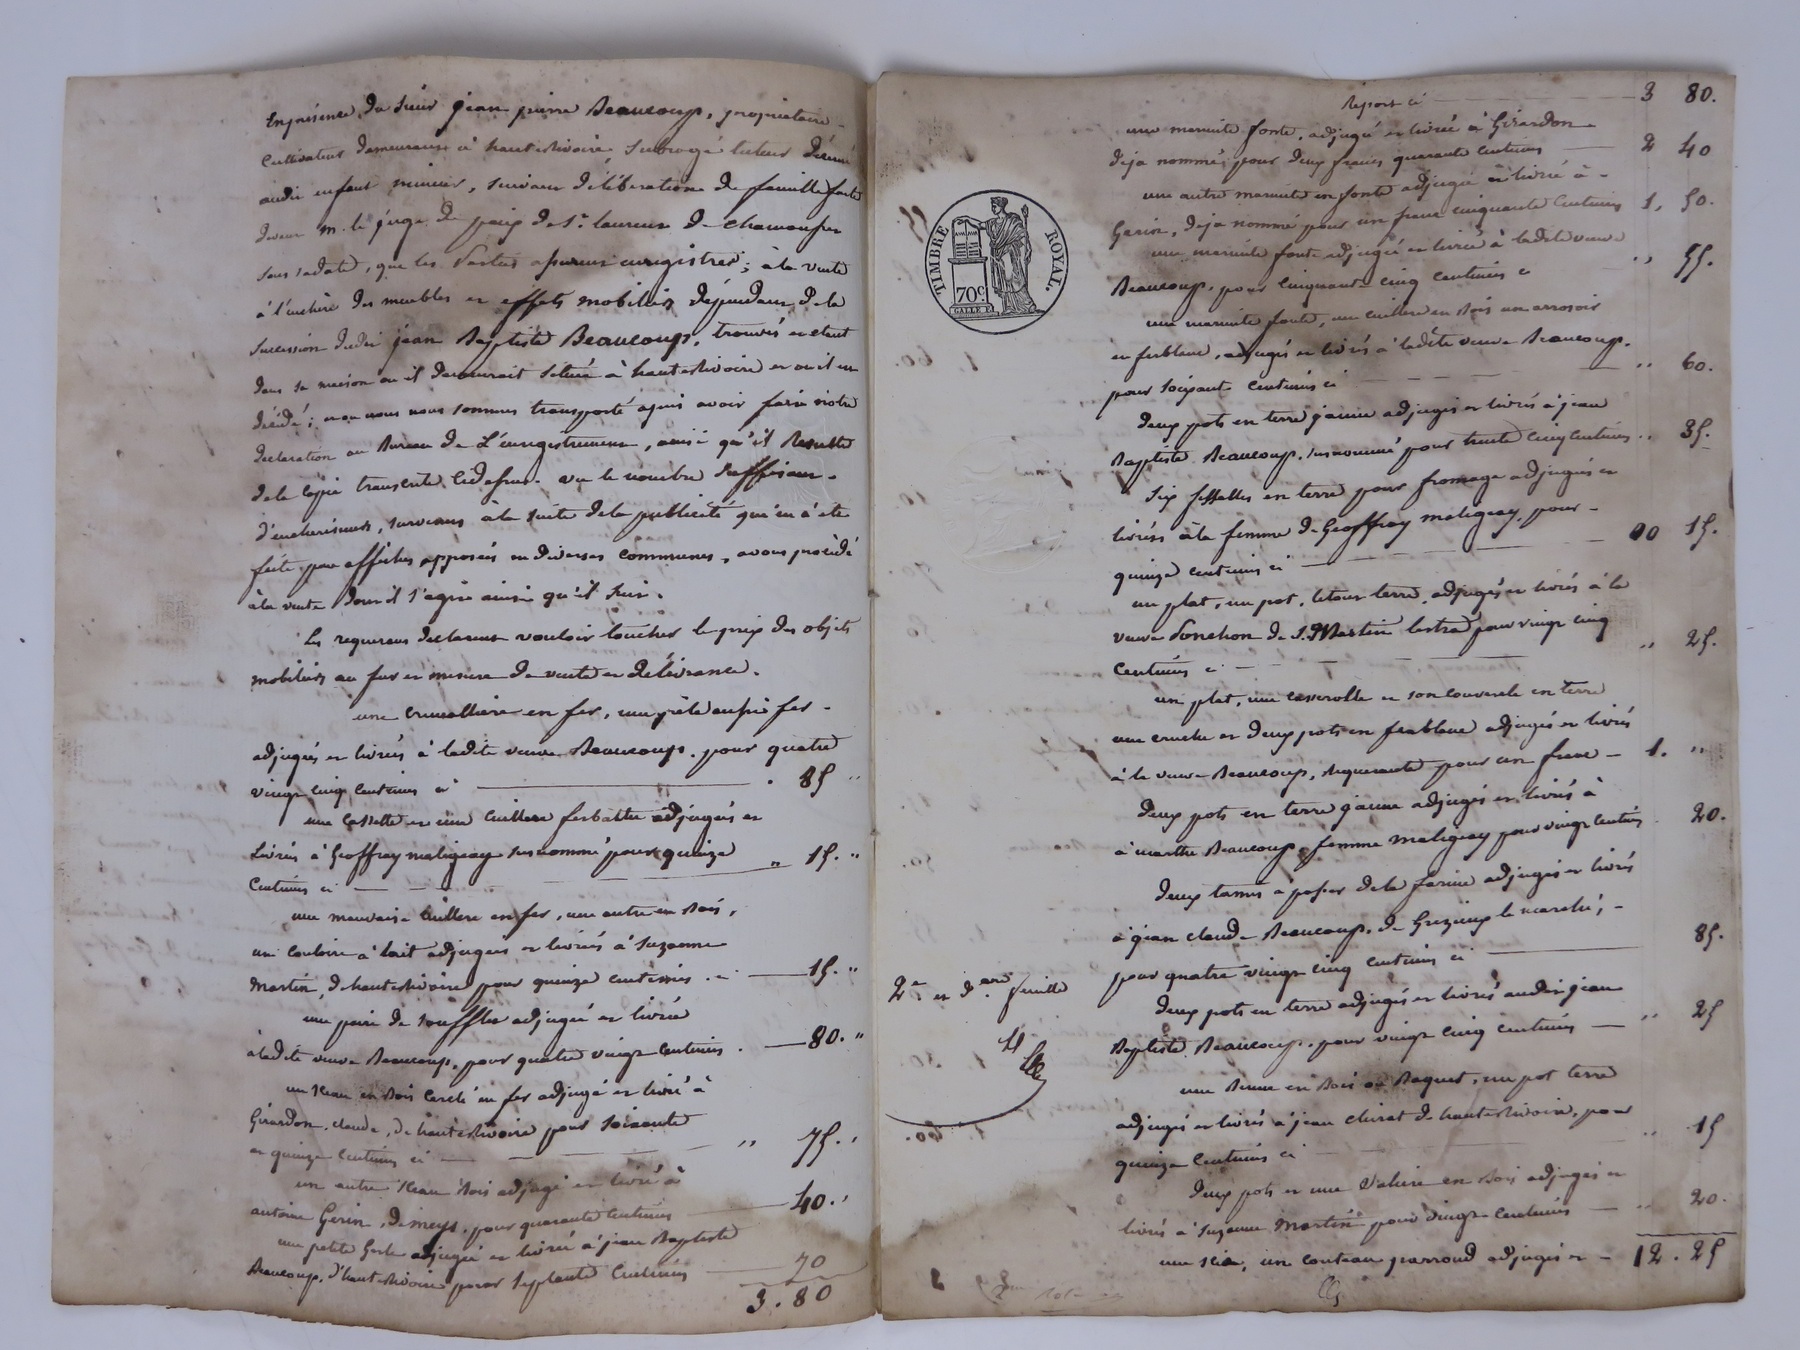 En présence du sieur jean pierre Beaucoup, propriétaire
cultivateur demeurant à hauterivoire, subrogé tuteur
audit enfant mineur, suivant délibération de famille faite
devant m. le juge de paix de St. laurent de chamousset
sous sa date, que les parties enregistrer; à la vente
à l'enchère des meubles et effets mobiliers dépendant de la
succession dudit jean Baptiste Beaucoup, trouvés
dans sa maison ou il demeurait située à hauterivoire et ou il est
décédé; et ou nous nous sommes transporté après avoir fait notre
declaration au Bureau de L'énregistrement, ainsi qu'il Résulte
de la copie transcrite. vu le nombre suffisant
d'encherisseurs, survenus à la suite de la publicité qui en a été
faite par affiches apposées en diverses communes, avons procédé
à la vente dont il s'agit ainsi qu'il suit.
Les requerans declarent vouloir toucher le prix des objets
mobiliers au fur et mesure de vente et délivrance.
une cremalliere en fer, une pèle aussi fer
adjugés et livrés à ladite veuve Beaucoup. pour quatre
vingt cinq centimes ci 85 "
une cassette et une cuillere ferbattu adjugés et
livrés à Geoffray maligeay susnommé pour quinze
centimes ci " 15. "
une mauvaise cuillere en fer, une autre en Bois,
un couloire à lait adjugés et livrés à suzanne
martin, de hauterivoire pour quinze centimes. ci 15. "
une paire de soufflet adjugée et livrée
à ladite veuve Beaucoup, pour quatre vingt centimes. 80. "
un sceau en Bois cerclé en fer adjugé et livré à
Girardon, claude, de hauterivoire pour soixante
et quinze centimes ci " 75. "
un autre sceau Bois adjugé et livré à
antoine Gerin, de meys, pour quarante centimes 40. "
une petite adjugée et livrée à jean Baptiste
Beaucoup, d'hauterivoire pour septante centimes 70
3. 80
Report ci 3 80.
une marmite fonte, adjugée et livrée à Girardon
deja nommé, pour deux francs quarante centimes 2 40
une autre marmite en fonte adjugée et livrée à
Gerin, deja nommé pour un franc cinquante centimes 1, 50.
une marmite fonte adjugée et livrée à ladite veuve
Beaucoup, pour cinquante cinq centimes ci " 55.
une marmite fonte, une cuillere en Bois un arrosoir
en ferblanc, adjugés et livrés à ladite veuve Beaucoup.
pour soixante centimes ci " 60.
deux pots en terre jaune adjugés et livrés à jean
Baptiste Beaucoup, susnommé pour trente cinq centimes " 35.
six fesselles en terre pour fromage adjugées et
livrées à la femme de Geoffray maligeay, pour
quinze centimes ci 00 15.
un plat, un pot, le tout terre, adjugés et livrés à la
veuve Ponchon de St. Martin lestra pour vingt cinq
centimes ci " 25.
un plat, une casserolle et son couvercle en terre
une cruche et deux pots en ferblanc adjugés et livrés
à la veuve Beaucoup, requerante pour un franc 1. "
deux pots en terre jaune adjugés et livrés à
à marthe Beaucoup femme maligeay pour vingt centimes 20.
deux tamis à passer de la farine adjugés et livrés
à jean claude Beaucoup, de Grezieux le marché,
pour quatre vingt cinq centimes ci 85.
deux pots en terre adjugés et livrés audit jean
Baptiste Beaucoup, pour vingt cinq centimes " 25
une Benne en Bois ou Baquet, un pot terre
adjugés et livrés à jean de hauterivoire, pour
quinze centimes ci " 15
deux pots et une en Bois adjugés et
livrés à suzanne Martin pour vingt centimes " 20.
une scie, un couteau adjugés et 12. 25
TIMBRE ROYAL.
70c.
2e. et d.ere feuille